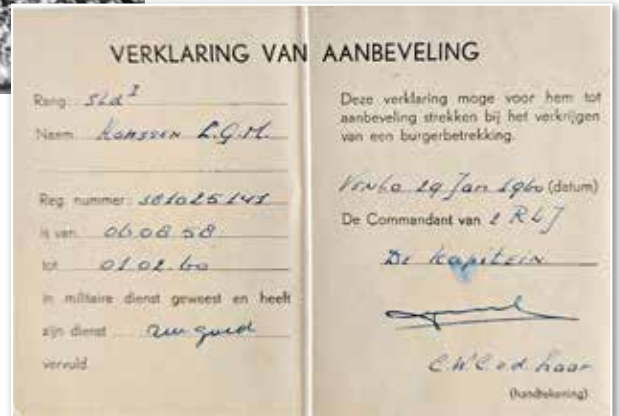 VERKLARING VAN AANBEVELING
Rang Sld I
Naam Konssen L.G.M.
Reg. nummer
is van 06.08.58
tot 01.02.60
in militaire dienst geweest en heeft
zijn dienst zeer goed
vervuld
Deze verklaring moge voor hem tot
aanbeveling strekken bij het verkrijgen
van een burgerbetrekking.
Venlo 29 Jan 1960 (datum)
De Commandant van
De Kapitein
(handtekening)